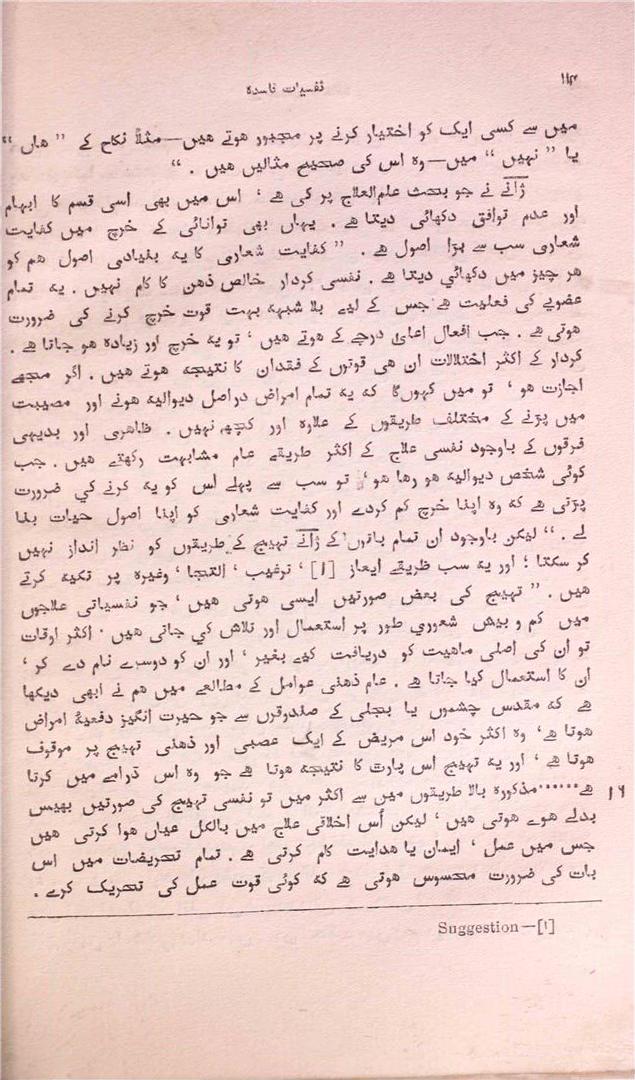 ۱۱۴
نفسیات فاسدہ
میں سے کسی ایک کو اختیار کرنے پر مجبور ہوتے ہیں—مثلاً نکاح کے ”ہاں“
یا ”نہیں“ میں—وہ اس کی صحیح مثالیں ہیں ۔“
ژانے نے جو بحث علم‌العلاج پر کی ہے ، اس میں بھی اسی قسم کا ابہام
اور عدم توافق دکھائی دیتا ہے ۔ یہاں بھی توانائی کے خرچ میں کفایت
شعاری سب سے بڑا اصول ہے ۔ ”کفایت شعاری کا یہ بنیادی اصول ہم کو
ہر چیز میں دکھائی دیتا ہے ۔ نفسی کردار خالص ذہن کا کام نہیں ۔ یہ تمام
عضویے کی فعلیت ہے جس کے لیے بلا شبہہ بہت قوت خرچ کرنے کی ضرورت
ہوتی ہے ۔ جب افعال اعلیٰ درجے کے ہوتے ہیں ، تو یہ خرچ اور زیادہ ہو جاتا ہے ۔
کردار کے اکثر اختلالات ان ہی قوتوں کے فقدان کا نتیجہ ہوتے ہیں ۔ اگر مجھے
اجازت ہو ، تو میں کہوں‌گا کہ یہ تمام امراض دراصل دیوالیہ ہونے اور مصیبت
میں پڑنے کے مختلف طریقوں کے علاوہ اور کچھ نہیں ۔ ظاہری اور بدیہی
فرقوں کے باوجود نفسی علاج کے اکثر طریقے عام مشابہت رکھتے ہیں ۔ جب
کوئی شخص دیوالیہ ہو رہا ہو ، تو سب سے پہلے اس کو یہ کرنے کی ضرورت
پڑتی ہے کہ وہ اپنا خرچ کم کردے اور کفایت شعاری کو اپنا اصول حیات بنا
لے ۔“ لیکن باوجود ان تمام باتوں کے ژانے تہییج کے طریقوں کو نظر انداز نہیں
کر سکتا ؛ اور یہ سب طریقے ایعاز [۱] ، ترغیب ، التجا ، وغیرہ پر تکیہ کرتے
ہیں ۔ ”تہییج کی بعض صورتیں ایسی ہوتی ہیں ، جو نفسیاتی علاجوں
میں کم و بیش شعوری طور پر استعمال اور تلاش کی جاتی ہیں ۔ اکثر اوقات
تو ان کی اصلی ماہیت کو دریافت کیے بغیر ، اور ان کو دوسرے نام دے کر ،
ان کا استعمال کیا جاتا ہے ۔ عام ذہنی عوامل کے مطالعے میں ہم نے ابھی دیکھا
ہے کہ مقدس چشموں یا بجلی کے صندوقوں سے جو حیرت انگیز دفعیۂ امراض
ہوتا ہے ، وہ اکثر خود اس مریض کے ایک عصبی اور ذہنی تہییج پر موقوف
ہوتا ہے ، اور یہ تہییج اس پارٹ کا نتیجہ ہوتا ہے جو وہ اس ڈرامے میں کرتا
ہے......مذکورہ بالا طریقوں میں سے اکثر میں تو نفسی تہییج کی صورتیں بھیس
بدلے ہوے ہوتی ہیں ، لیکن اُس اخلاقی علاج میں بالکل عیاں ہوا کرتی ہیں
جس میں عمل ، ایمان یا ہدایت کام کرتی ہے ۔ تمام تحریضات میں اس
بات کی ضرورت محسوس ہوتی ہے کہ کوئی قوت عمل کی تحریک کرے ۔
Suggestion—[۱]